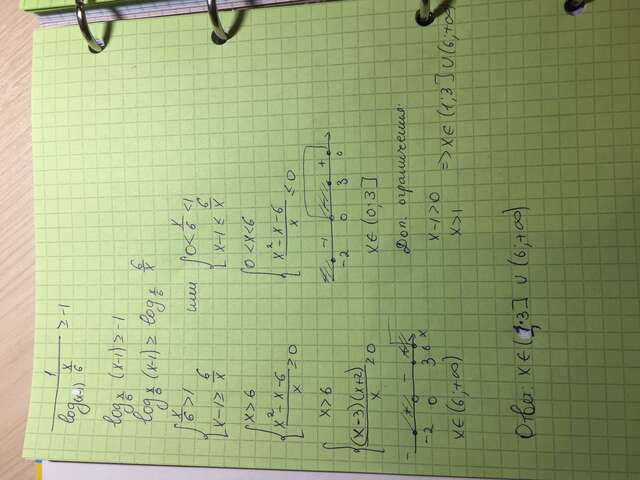 1/(log_(x-1) x/6) ≥ -1
log_(x/6) (x-1) ≥ -1
log_(x/6) (x-1) ≥ log_(x/6) 6/x
{ x/6 > 1
{ x-1 ≥ 6/x
или
{ 0 < x/6 < 1
{ x-1 ≤ 6/x
{ x > 6
{ (x²-x-6)/x ≥ 0
{ 0 < x < 6
{ (x²-x-6)/x ≤ 0
{ x > 6
{ (x-3)(x+2)/x ≥ 0
-2 0 3 6 x
x∈(6;+∞)
-2 0 3 6
x∈(0;3]
Доп. ограничения:
x-1>0
x>1
=> x∈(1;3]∪(6;+∞)
Ответ: x∈(1;3] ∪ (6;+∞)